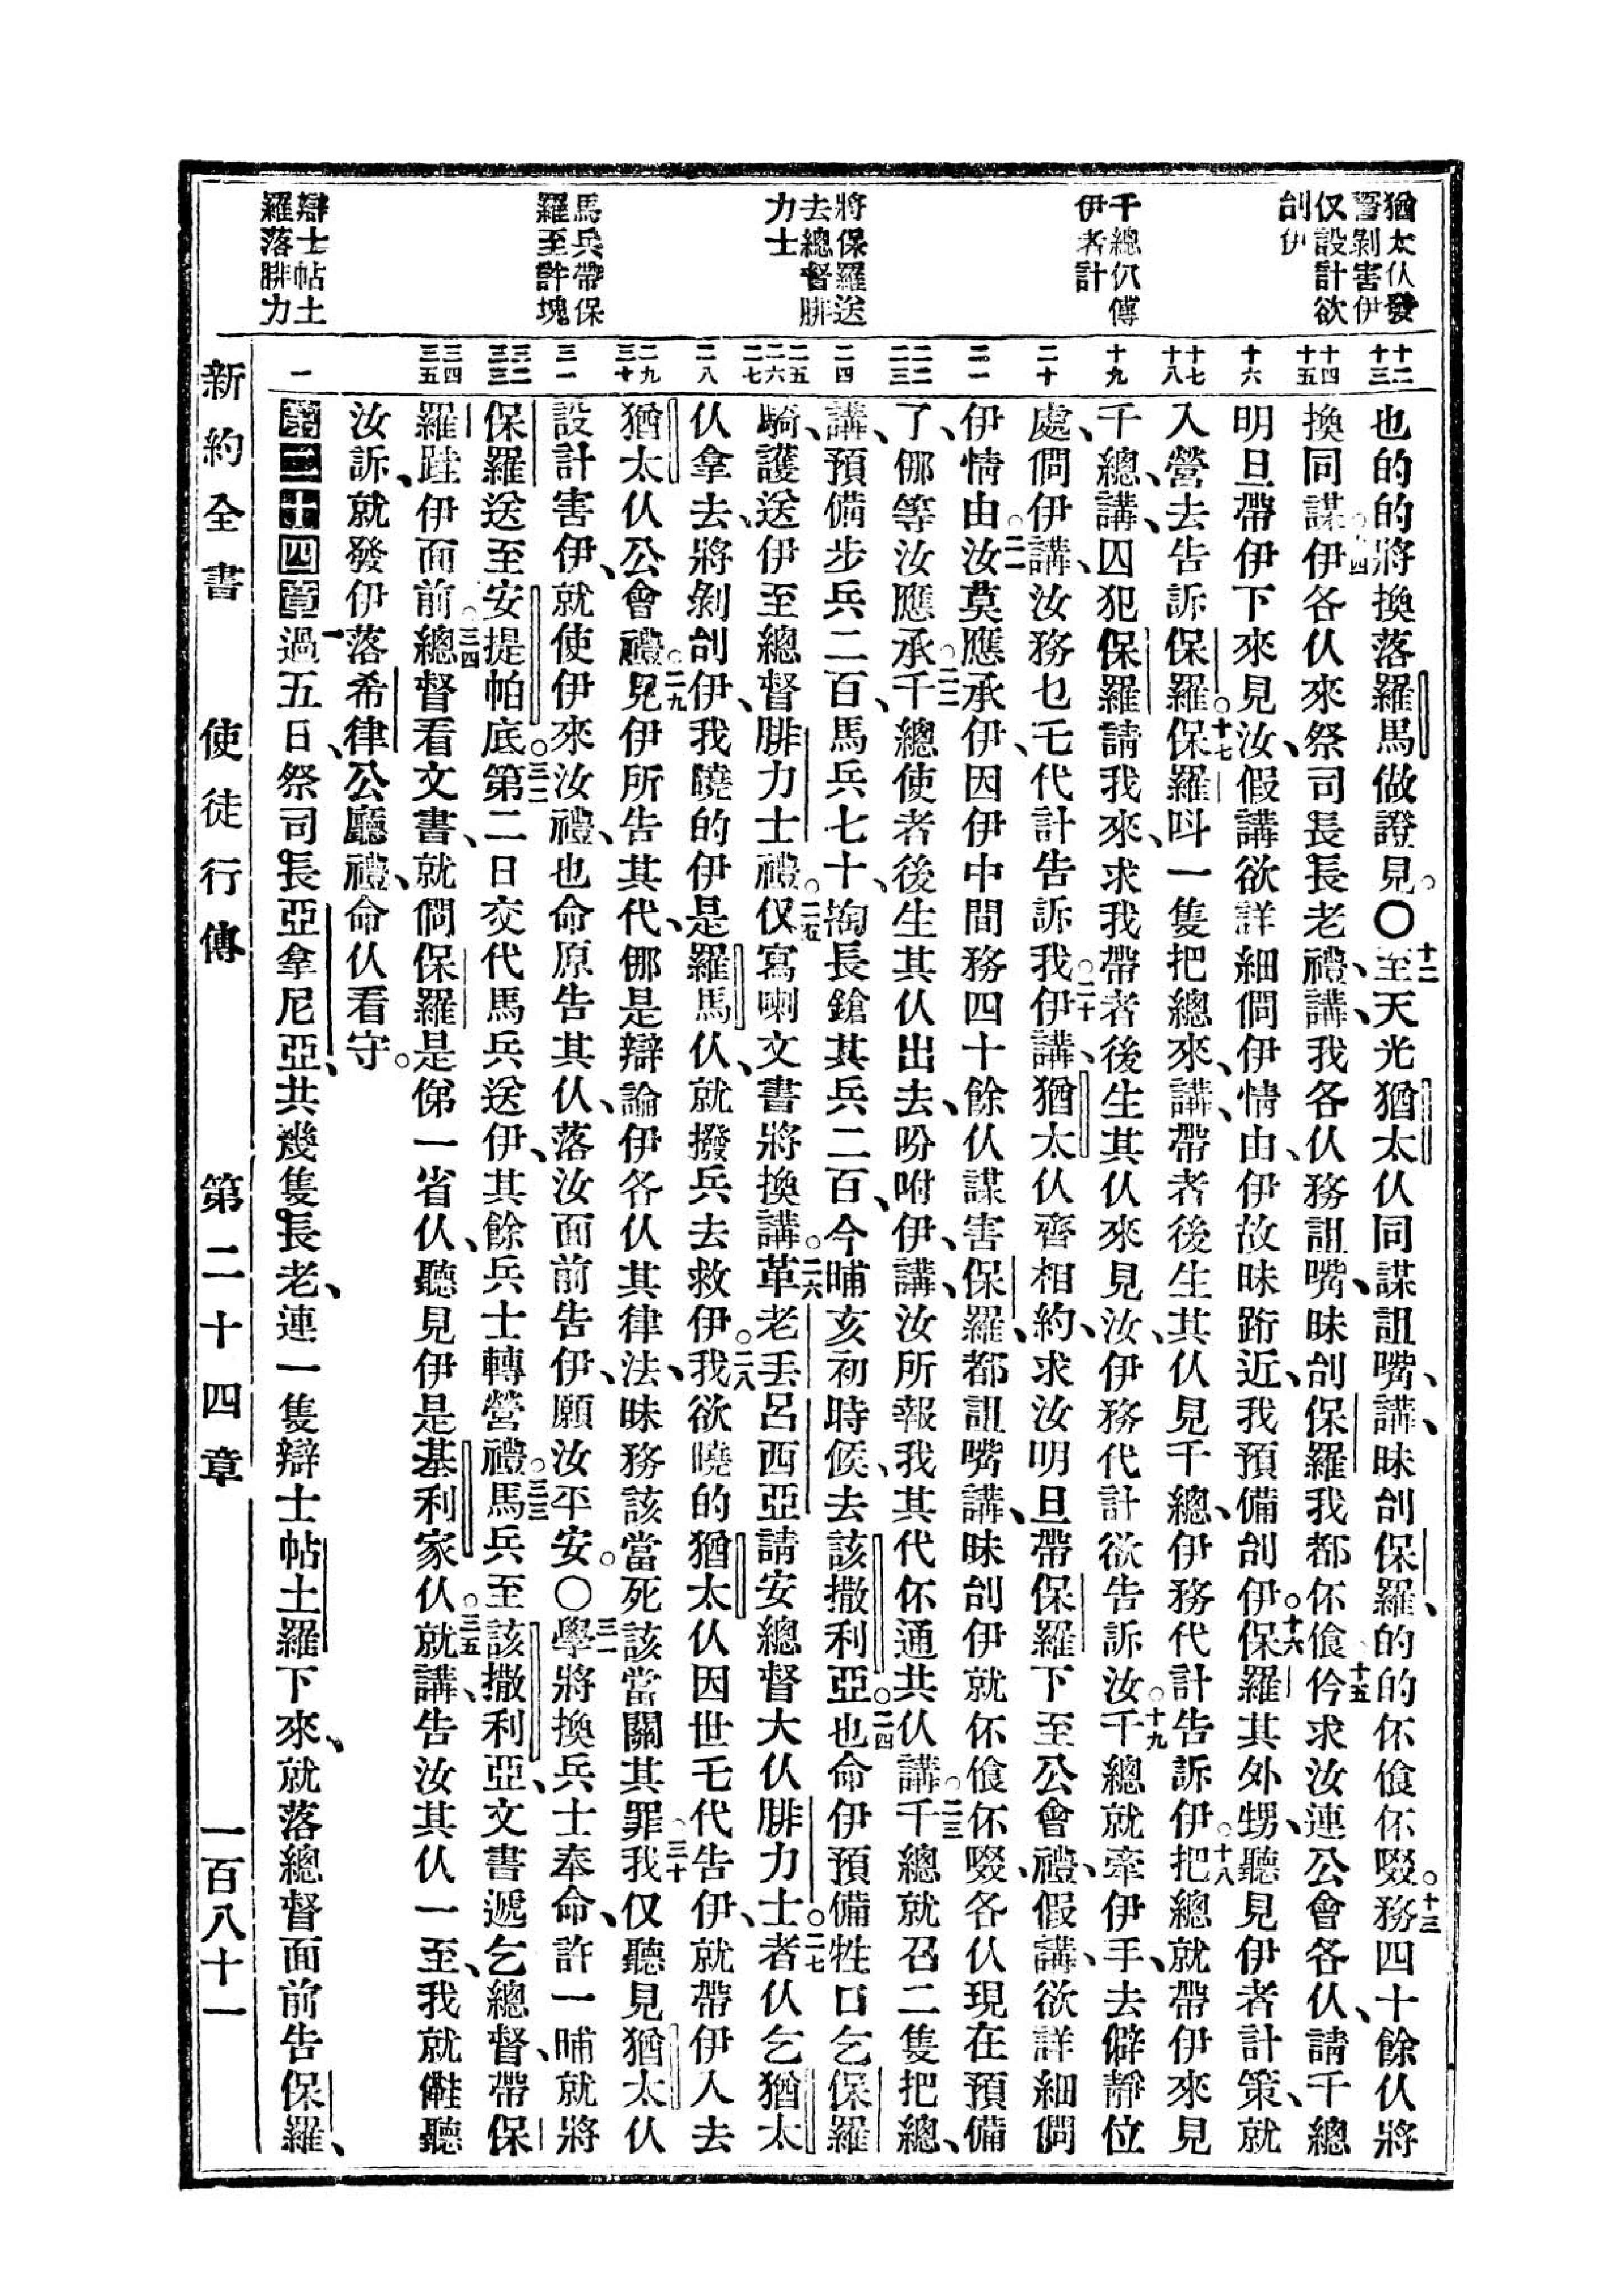 猶太仈發
誓剝害伊
仅設計欲
刣伊
千總仈傳
伊者計
將保羅送
去總督腓
力士
馬兵帶保
羅至許塊
辯士帖土
羅落腓力
十二
十三
十四
十五
十六
十七
十八
十九
二十
二一
二二
二三
二四
二五
二六
二七
二八
二九
三十
三一
三二
三三
三四
三五
一
也的的將換落羅馬做證見。〇十二至天光猶太仈同謀詛嘴、講、昧刣保羅、的的伓飡伓啜。十三務四十餘仈將
換同謀。十四伊各仈來祭司長長老禮、講、我各仈務詛嘴、昧刣保羅我都伓飡十五仱求汝連公會各仈、請千總
明旦帶伊下來見汝、假講欲詳細僩伊情由、伊故昧跻近、我預備刣伊。十六保羅其外甥、聽見伊者計策、就
入營去告訴保羅。十七保羅呌一隻把總來、講、帶者後生其仈見千總、伊務代計告訴伊。十八把總就帶伊來見
千總、講、囚犯保羅請我來、求我帶者後生其仈來見汝、伊務代計欲告訴汝。十九千總就牽伊手、去僻靜位
處、僩伊講、汝務乜乇代計告訴我。二十伊講、猶太仈齊相約、求汝明旦帶保羅下至公會禮、假講、欲詳細僩
伊情由。二一汝莫應承伊、因伊中間務四十餘仈謀害保羅、都詛嘴講、昧刣伊就伓飡伓啜、各仈現在預備
了、㑚等汝應承。二二千總使者後生其仈出去、吩咐伊、講、汝所報我其代伓通共仈講。二三千總就召二隻把總、
講、預備步兵二百、馬兵七十、掏長鎗其兵二百、今晡亥初時候、去該撒利亞。二四也命伊預備牲口乞保羅
騎、護送伊至總督腓力士禮。二五仅寫喇文書將換講。二六革老丟呂西亞請安總督大仈腓力士。二七者仈乞猶太
仈拿去、將剝刣伊、我曉的伊是羅馬仈、就撥兵去救伊。二八我欲曉的猶太仈因世乇代告伊、就帶伊入去
猶太仈公會禮。二九見伊所告其代、㑚是辯論伊各仈其律法、昧務該當死該當關其罪。三十我仅聽見猶太仈
設計害伊、就使伊來汝禮、也命原告其仈、落汝面前告伊、願汝平安。〇三一學將換兵士奉命、許一晡就將
保羅送至安提帕底。三二第二日交代馬兵送伊、其餘兵士轉營禮。三三馬兵至該撒利亞、文書遞乞總督、帶保
羅跬伊面前。三四總督看文書、就僩保羅是俤一省仈、聽見伊是基利家仈。三五就講、告汝其仈一至、我就𠆧聽
汝訴、就發伊落希律公廳禮、命仈看守。
第二十四章一過五日、祭司長亞拿尼亞、共幾隻長老、連一隻辯士帖土羅下來、就落總督面前告保羅、
新約全書　使徒行傳　第二十四章　一百八十一